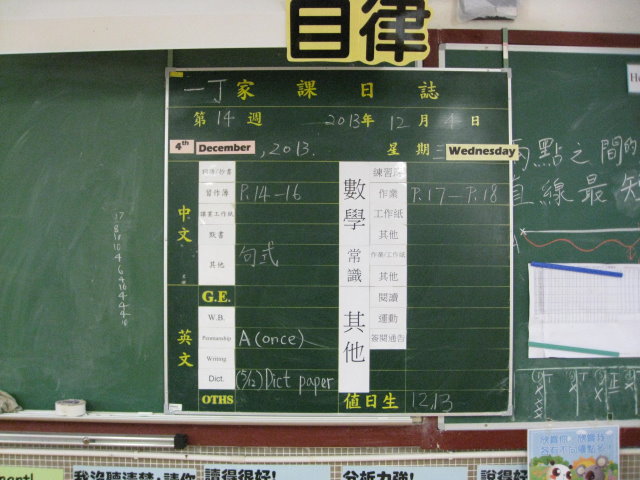 自律
一丁家課日誌
第14週 2013年12月4日
4th December, 2013. 星期三 Wednesday
中文
習作簿 P.14-16
默書
其他 句式
英文
G.E.
W.B.
Penmanship A (once)
Writing
Dict. (5/12) Dict paper
OTHS
數學
練習
作業 P.17-P.18
工作紙
其他
常識
作業/工作紙
其他
其他
閱讀
運動
簽閱通告
值日生 12,13
兩點之間的
直線最短
A
我沒聽清楚,請你
讀得很好!
分析力強!
說得